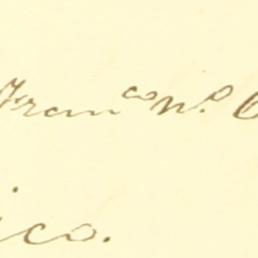 Fran^co N.o
ico.